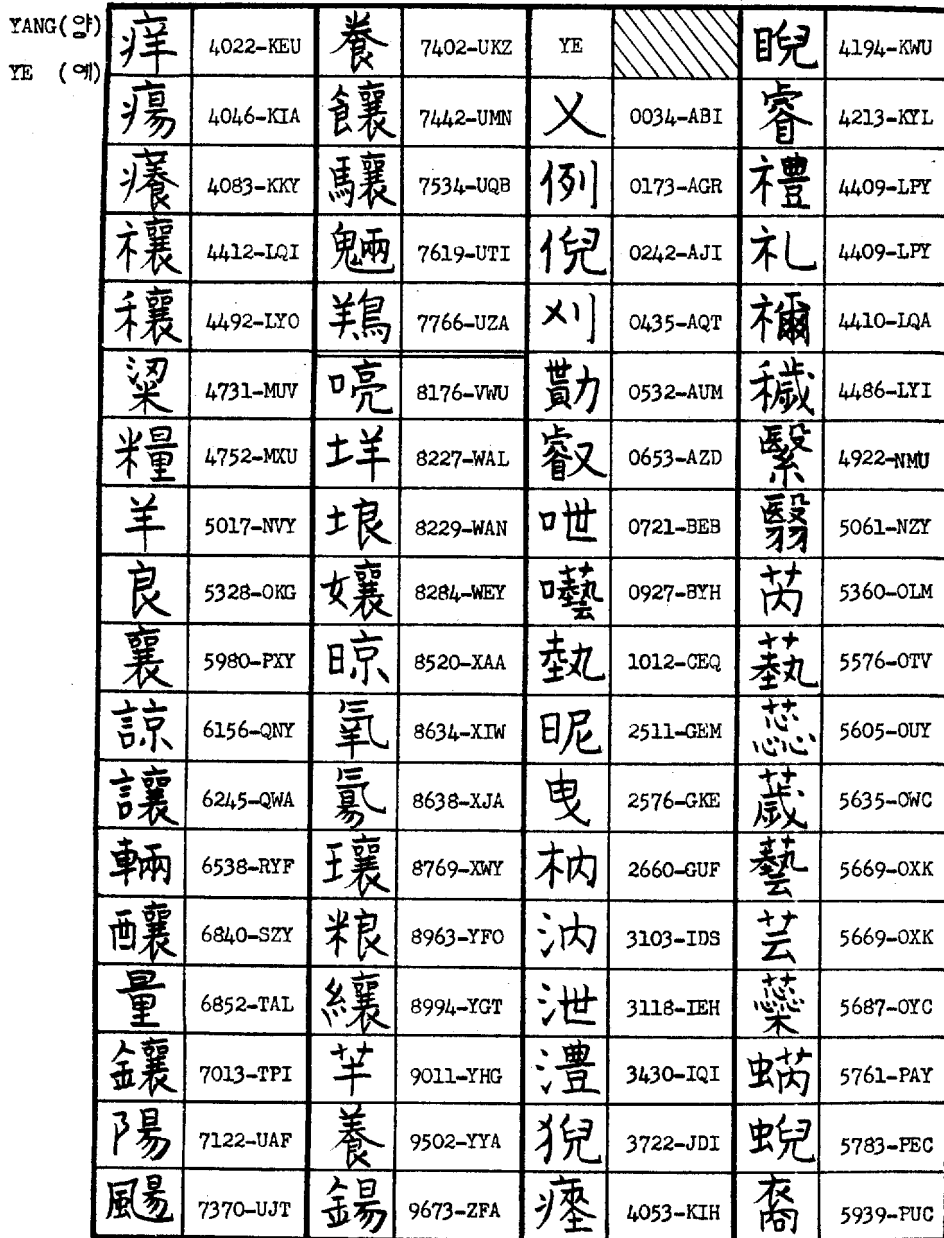 YANG(양) 痒 4022-KEU 養 7402-UKZ YE 睨 4194-KWU
YE (예)
瘍 4046-KIA 饟 7442-UMN 乂 0034-ABI 睿 4213-KYL
癢 4083-KKY 驤 7534-UQB 例 0173-AGR 禮 4409-LPY
禳 4412-LQI 魎 7619-UTI 倪 0242-AJI 礼 4409-LPY
穰 4492-LYO 鴹 7766-UZA 刈 0435-AQT 禰 4410-LQA
粱 4731-MUV 喨 8176-VWU 勩 0532-AUM 穢 4486-LYI
糧 4752-MXU 垟 8227-WAL 叡 0653-AZD 繄 4922-NMU
羊 5017-NVY 埌 8229-WAN 呭 0721-BEB 翳 5061-NZY
良 5328-OKG 孃 8284-WEY 囈 0927-BYH 芮 5360-OLM
襄 5980-PXY 晾 8520-XAA 埶 1012-CEQ 蓺 5576-OTV
諒 6156-QNY 氧 8634-XIW 昵 2511-GEM 蕊 5605-OUY
讓 6245-QWA 氱 8638-XJA 曳 2576-GKE 薉 5635-OWC
輛 6538-RYF 瓖 8769-XWY 枘 2660-GUF 藝 5669-OXK
釀 6840-SZY 粮 8963-YFO 汭 3103-IDS 芸 5669-OXK
量 6852-TAL 纕 8994-YGT 泄 3118-IEH 蘂 5687-OYC
鑲 7013-TPI 羋 9011-YHG 澧 3430-IQI 蜹 5761-PAY
陽 7122-UAF 養 9502-YYA 猊 3722-JDI 蜺 5783-PEC
颺 7370-UJT 鍚 9673-ZFA 瘞 4053-KIH 裔 5939-PUC